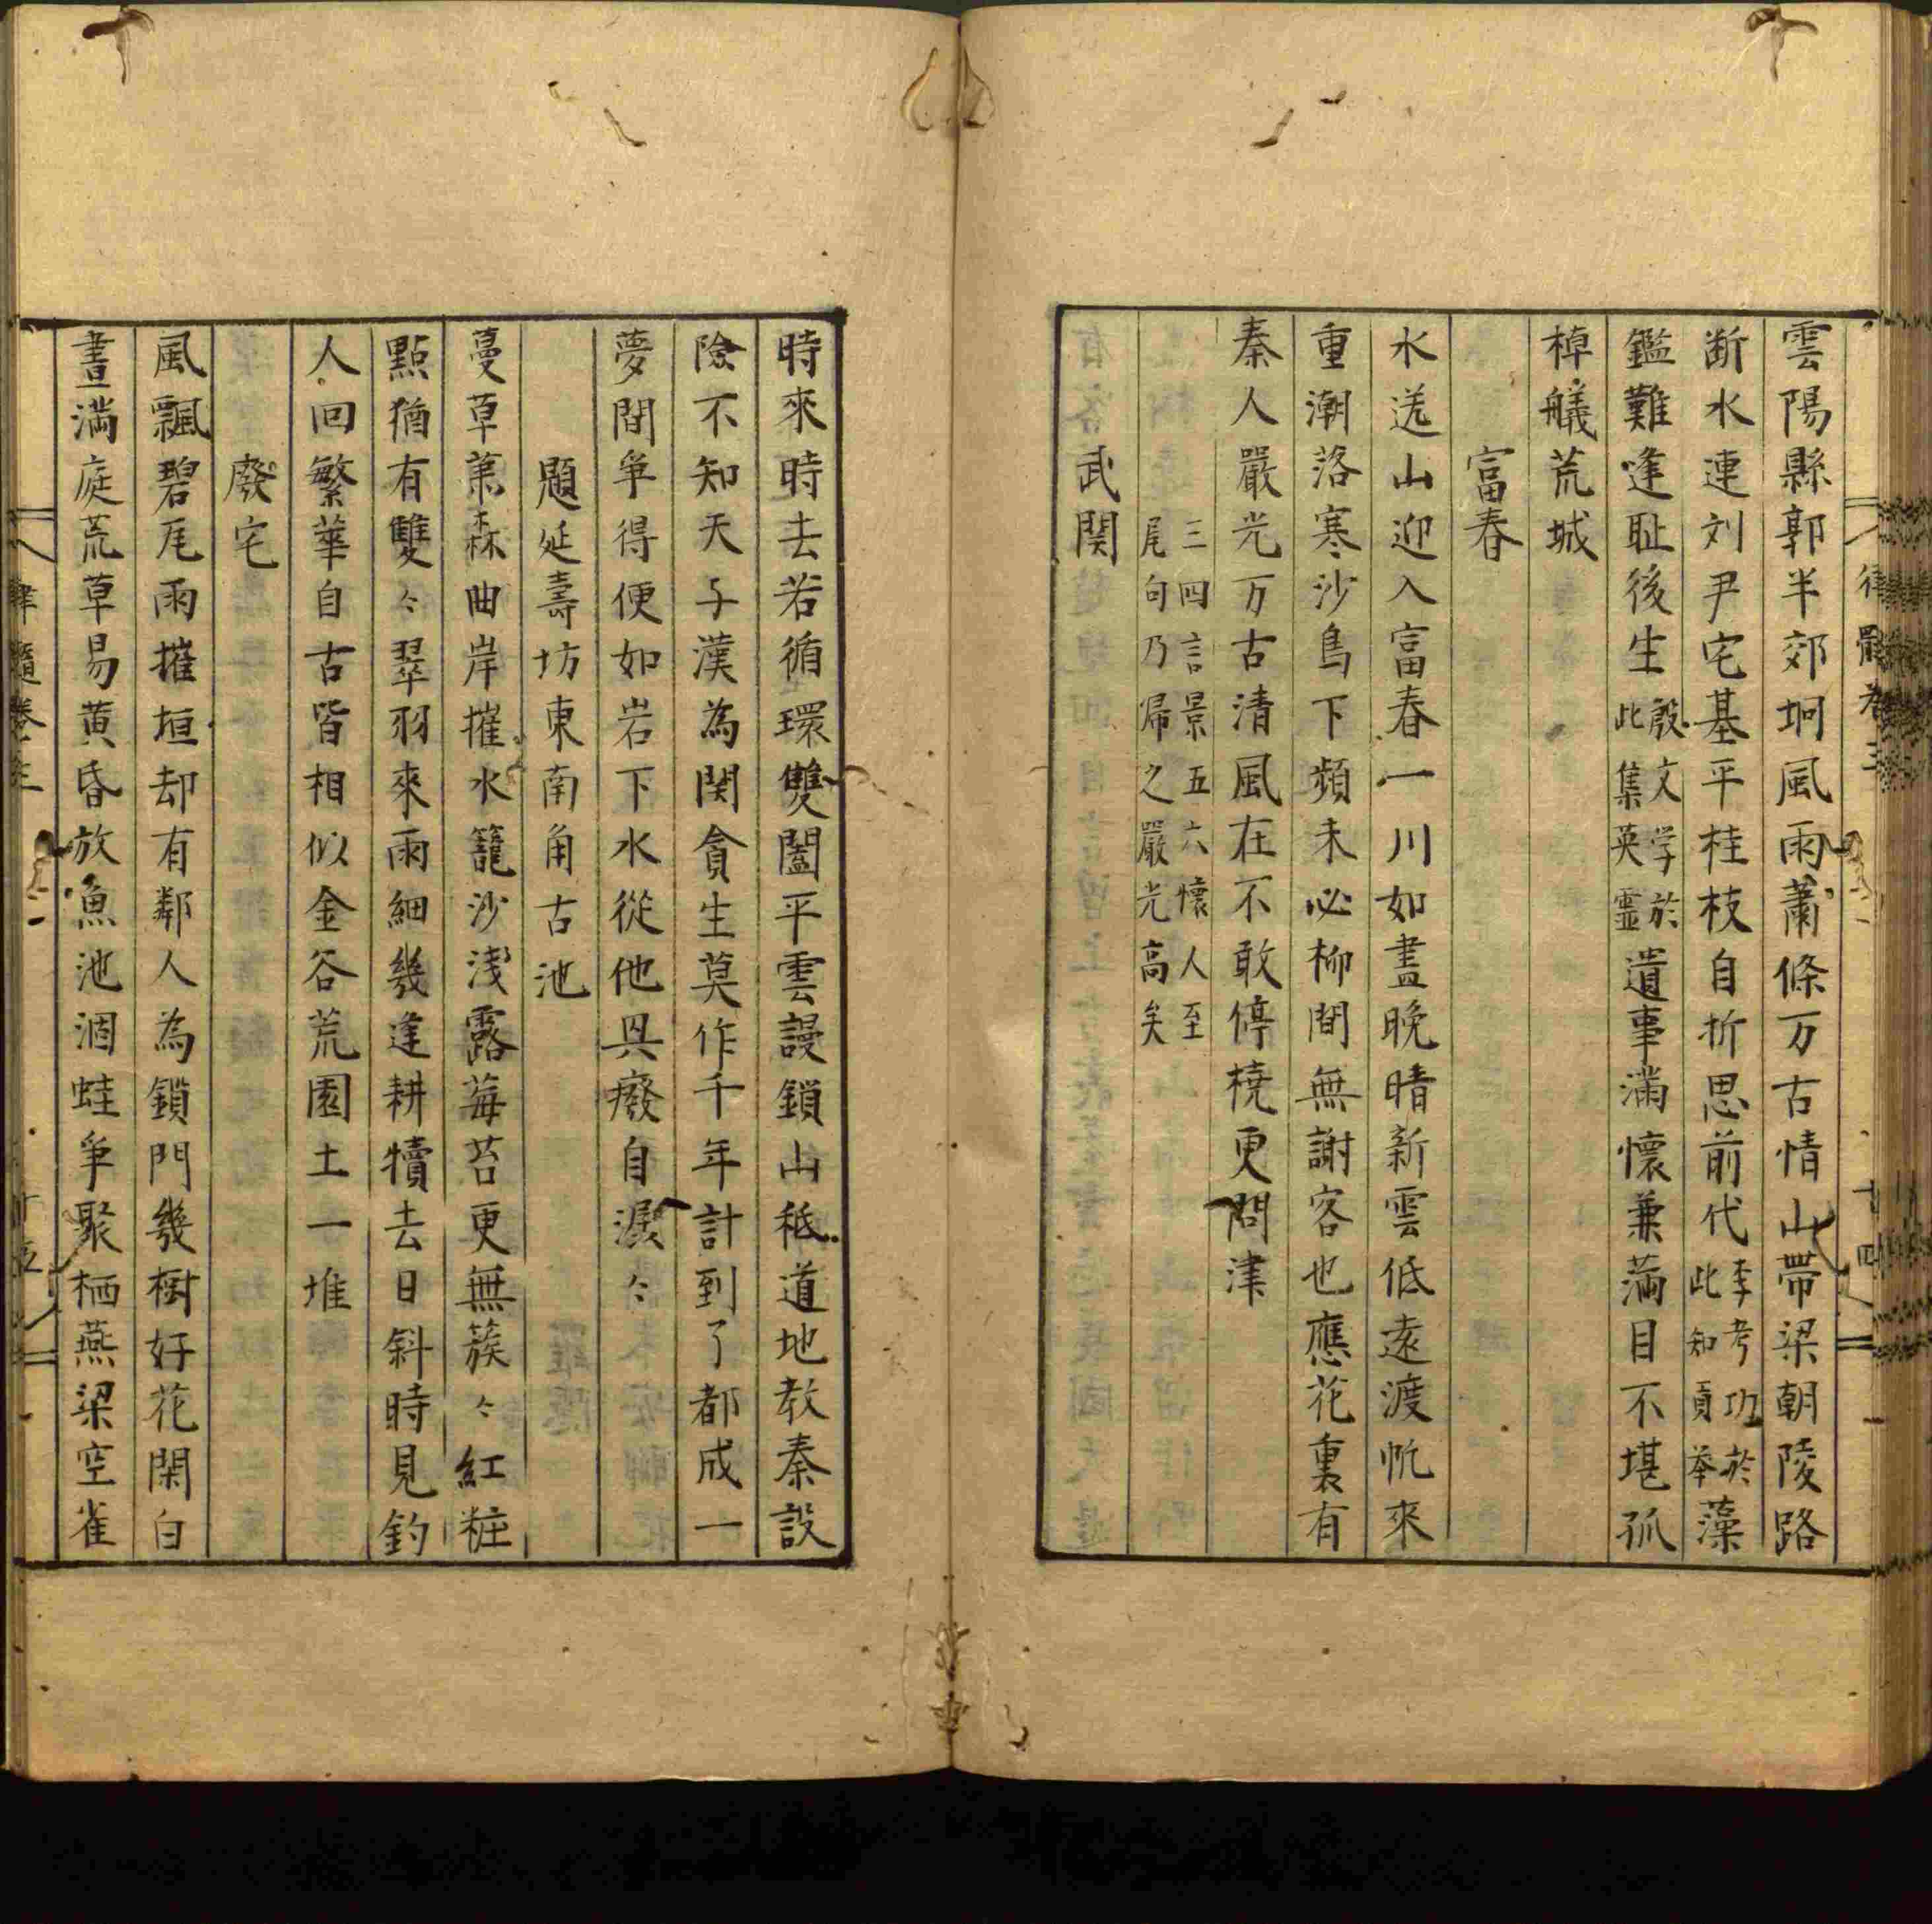 雲陽縣郭半郊坰風雨蕭條万古情山帶梁朝陵路
断水連刘尹宅基平桂枝自折思前代李考功於此知貢举藻
鑑難逢耻後生殷文学於此集英霊遺事滿懷兼滿目不堪孤
棹艤荒城
富春
水送山迎入富春一川如畫晚晴新雲低遠渡帆來
重潮落寒沙鳥下頻未必柳間無謝客也應花裏有
秦人嚴光万古清風在不敢停橈更問津
三四言景五六懷人至
尾句乃歸之嚴光高矣
武関
時來時去若循環雙闔平雲謾鎖山秪道地教秦設
險不知天子漢為関貪生莫作千年計到了都成一
夢間争得便如岩下水從他興廢自潺〻
題延壽坊東南角古池
蔓草萧森曲岸摧水籠沙浅露莓苔更無蔟〻紅粧
點猶有雙〻翠羽來雨細幾逢耕犢去日斜時見釣
人回繁華自古皆相似金谷荒園土一堆
廢宅
風飄碧瓦雨摧垣却有鄰人為鎖門幾樹好花閑白
晝滿庭荒草易黄昏放魚池涸蛙争聚栖燕梁空雀